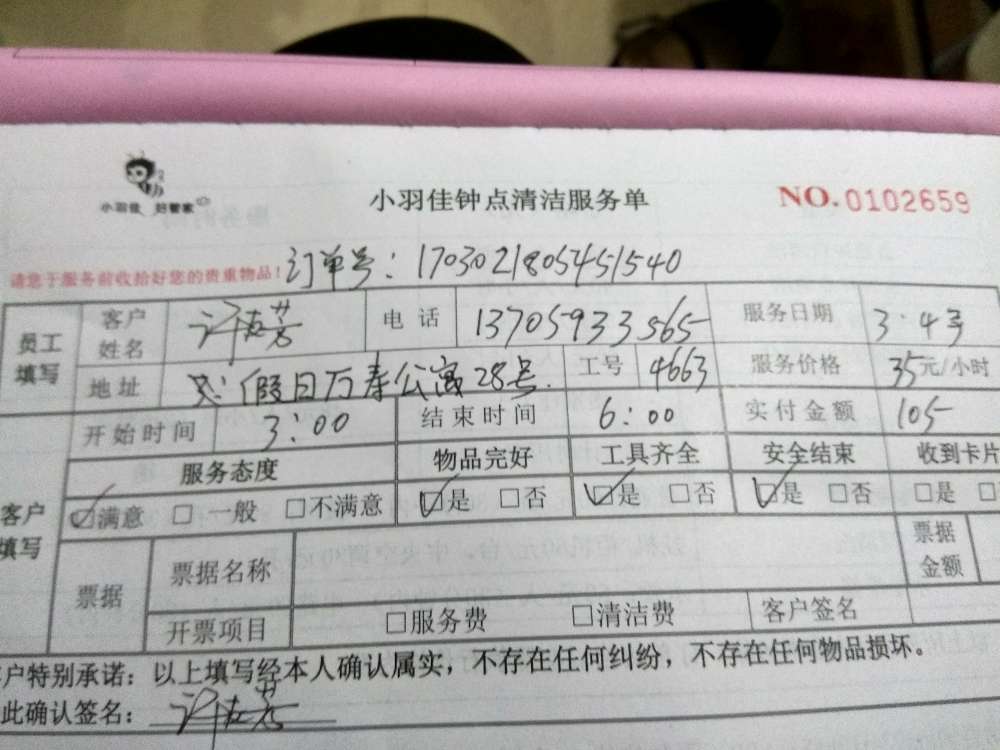 小羽佳 好管家
小羽佳钟点清洁服务单
NO.0102659
请您于服务前收拾好您的贵重物品!
订单号:1703021805451540
员工填写 客户姓名 电话 13705933565 服务日期 3·4号
地址 假日万寿公寓28号 工号 4663 服务价格 35元/小时
开始时间 3:00 结束时间 6:00 实付金额 105
客户填写 服务态度 物品完好 工具齐全 安全结束 收到卡片
☑满意 □一般 □不满意 ☑是 □否 ☑是 □否 ☑是 □否 □是 □
票据 票据名称 票据金额
开票项目 □服务费 □清洁费 客户签名
客户特别承诺:以上填写经本人确认属实,不存在任何纠纷,不存在任何物品损坏。
此确认签名: